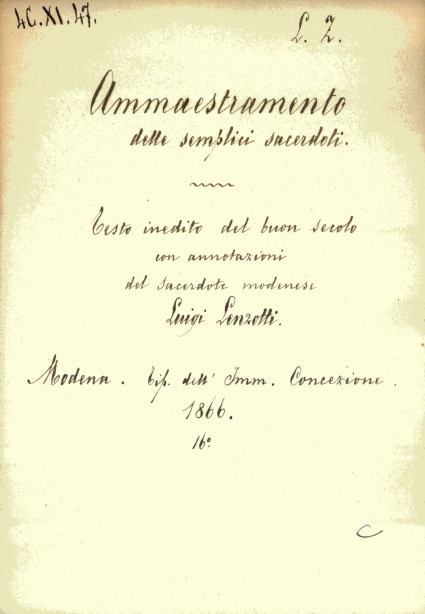 4C.XI.47.
L. Z.
Ammaestramento
delle semplici sacerdoti.
Testo inedito del buon secolo
con annotazioni
del sacerdote modenese
Luigi Lenzotti.
Modena. Tip. dell' Imm. Concezione.
1866.
16°
C